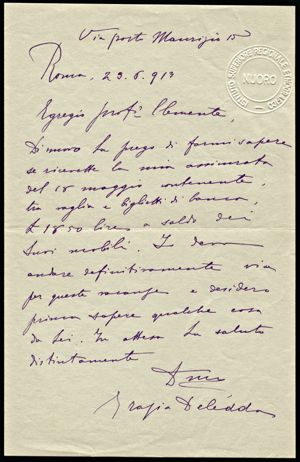 Via porto Maurizio 15
Roma, 23.6.913
Egregio prof.r Clemente,
Di nuovo La prego di farmi sapere
se ricevette la mia assicurata
del 18 maggio contenente,
tra vaglia e biglietti di banca,
£ 1850 lire a saldo dei
suoi mobili. Io devo
andare definitivamente via
per queste vacanze e desidero
prima sapere qualche cosa
da Lei. In attesa La saluto
distintamente
Grazia Deledda
ISTITUTO SUPERIORE REGIONALE ETNOGRAFICO
NUORO